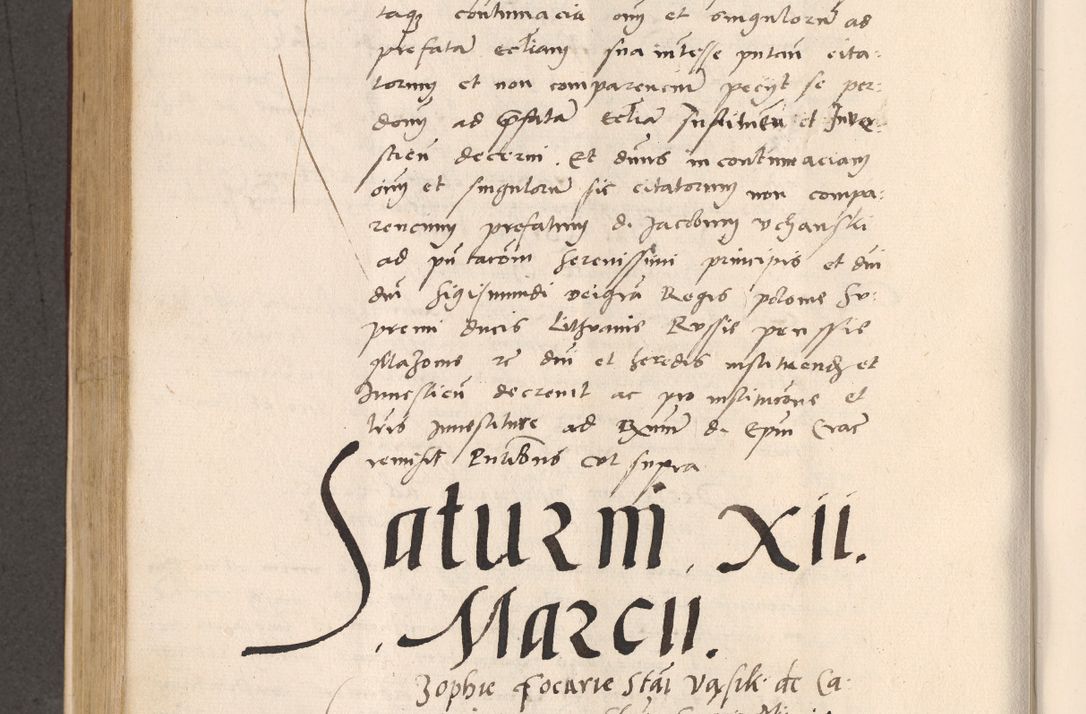 taq3 contumacia om et singulorũ ad
prefatã eccliam sua interesse putan cita:
torum et non comparenciũ pecyt se per:
donũ ad p̃fatã eccliã Instituen et Inve
stien decerni. Et dnus in contumaciam
om et singulorũ sic citatorum non compa:
rencium prefatum d. Jacobum Vchanski
ad p̃ntacõm serenissimi principis et dni
dni Sigismundi dei grã Regis polonie Su:
premi ducis Lithvanie Rvssie prvssie
Mazovie rc dni et heredis instituend et
Investien decrevit ac pro institucõne et
lr̃is Investiture ad Rxmũ d. Epũm Crac
remisit Pñtibus vt supra
Saturni. XII.
. Marcii.
Zophie focarie Stãi Vasik de Ca